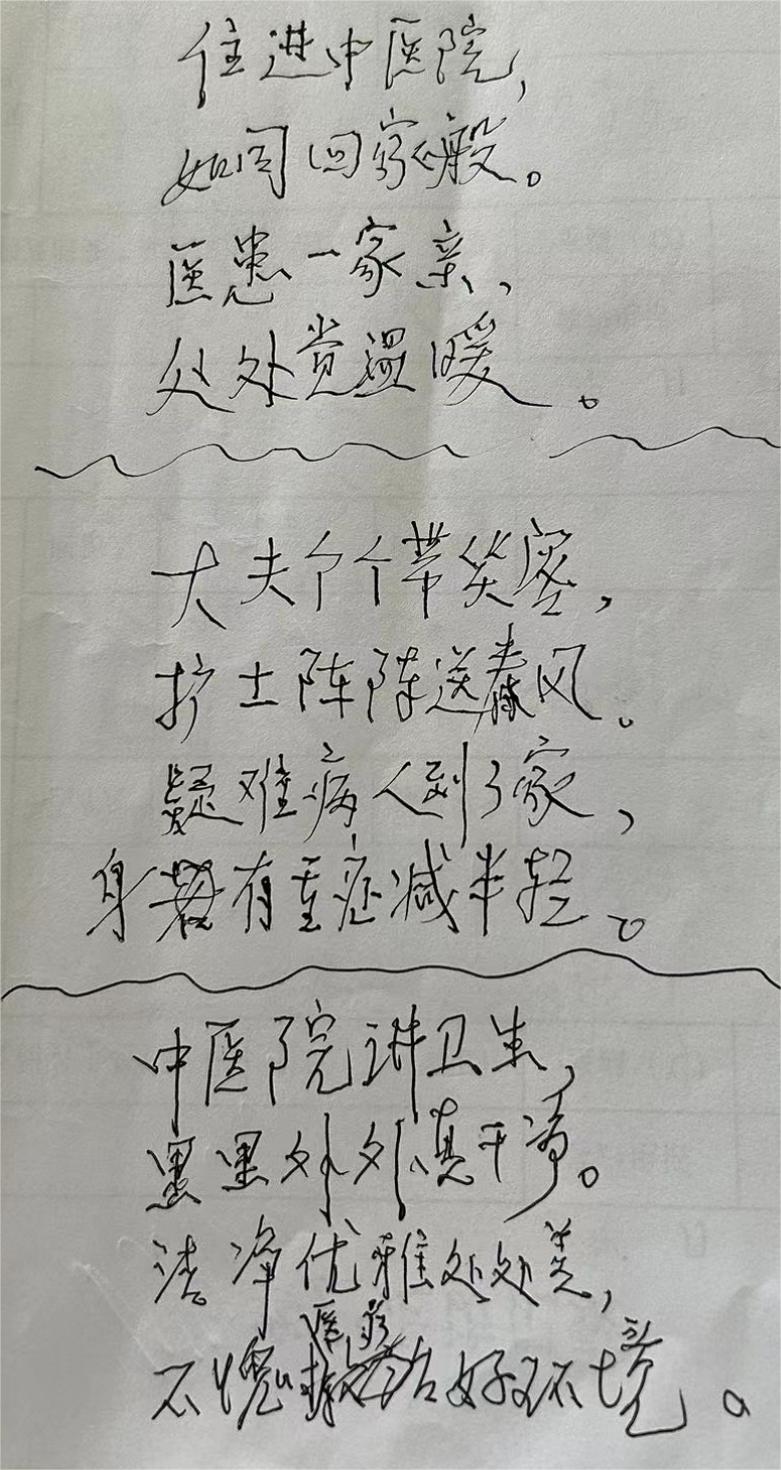 住进中医院，
如同回家般。
医患一家亲，
处处觉温暖。
大夫个个带笑容，
护士阵阵送春风。
疑难病人到了家，
身有重症减半轻。
中医院讲卫生，
里里外外真干净。
洁净优雅处处美，
不愧医疗好环境。